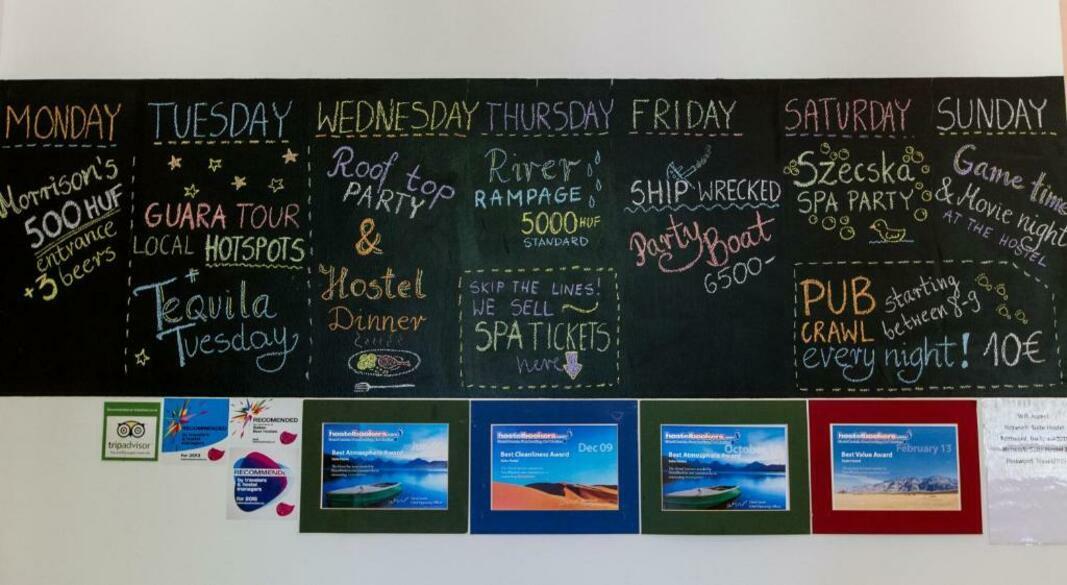 MONDAY
Morrison's
500 HUF
entrance
+3 beers
TUESDAY
GUARA TOUR
LOCAL HOTSPOTS
Tequila
Tuesday
WEDNESDAY
Roof top
PARTY
&
Hostel
Dinner
THURSDAY
River
RAMPAGE
5000 HUF
STANDARD
SKIP THE LINES!
WE SELL
SPA TICKETS
here
FRIDAY
SHIP WRECKED
Party Boat
6500-
SATURDAY
Szecska
SPA PARTY
SUNDAY
Game time
& Movie night
AT THE HOSTEL
PUB
CRAWL
starting
between 8-9
every night! 10€
tripadvisor
RECOMMENDED
by travelers
& hostel
managers
for 2013
RECOMENDED
RECOMMEND
by travelers
& hostel
managers
hostelbookers.com
Best Atmosphere Award
hostelbookers.com
Dec 09
Best Cleanliness Award
hostelbookers.com
October
Best Atmosphere Award
hostelbookers.com
February 13
Best Value Award